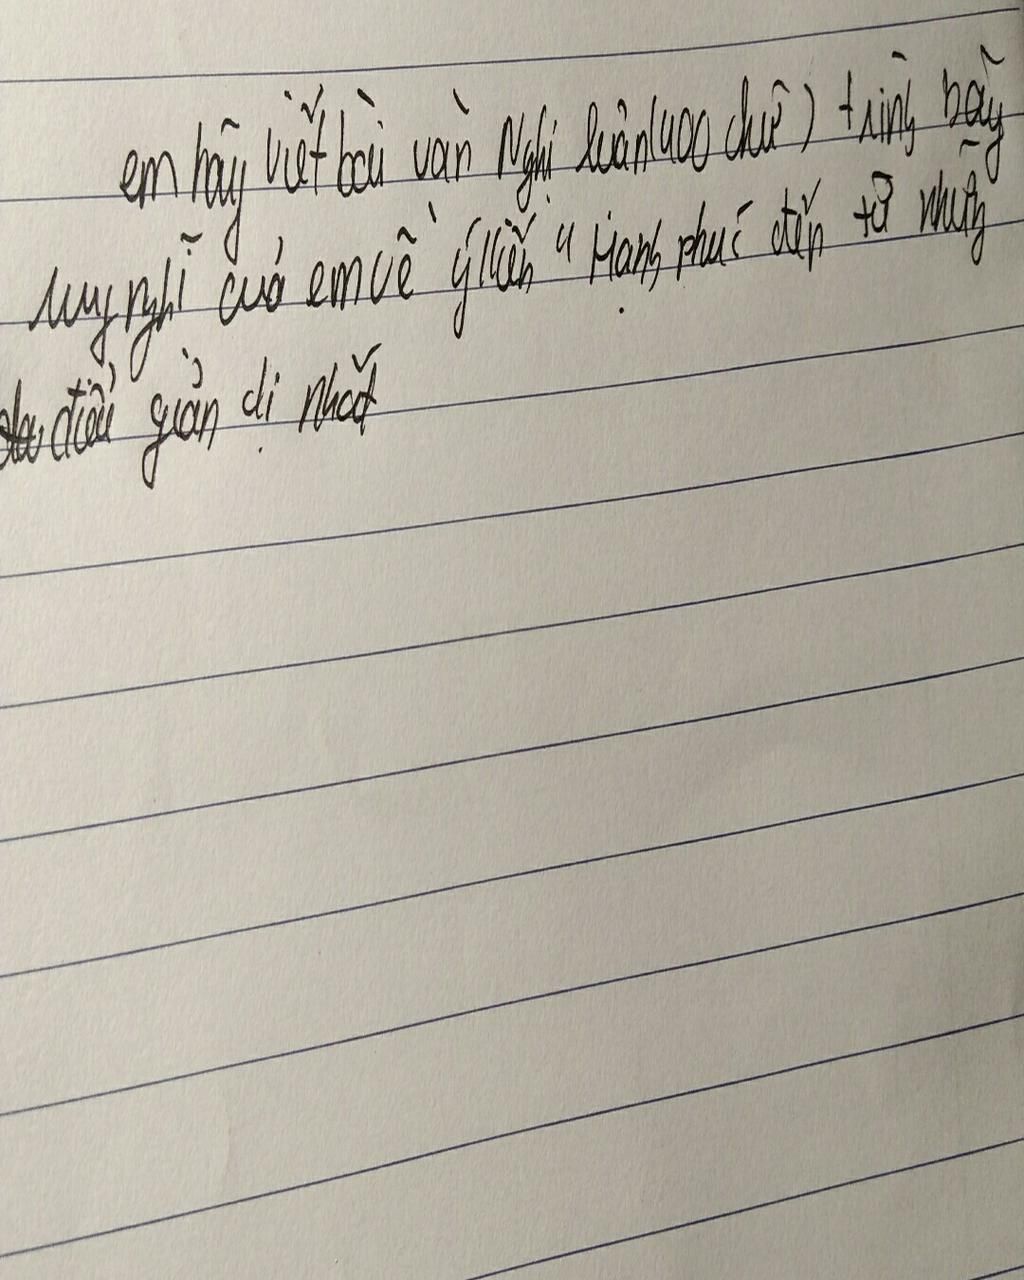 em hãy viết bài văn Nghị luận (400 chữ) trình bày
suy nghĩ của em về ý kiến "Hạnh phúc đến từ những
điều giản dị nhất